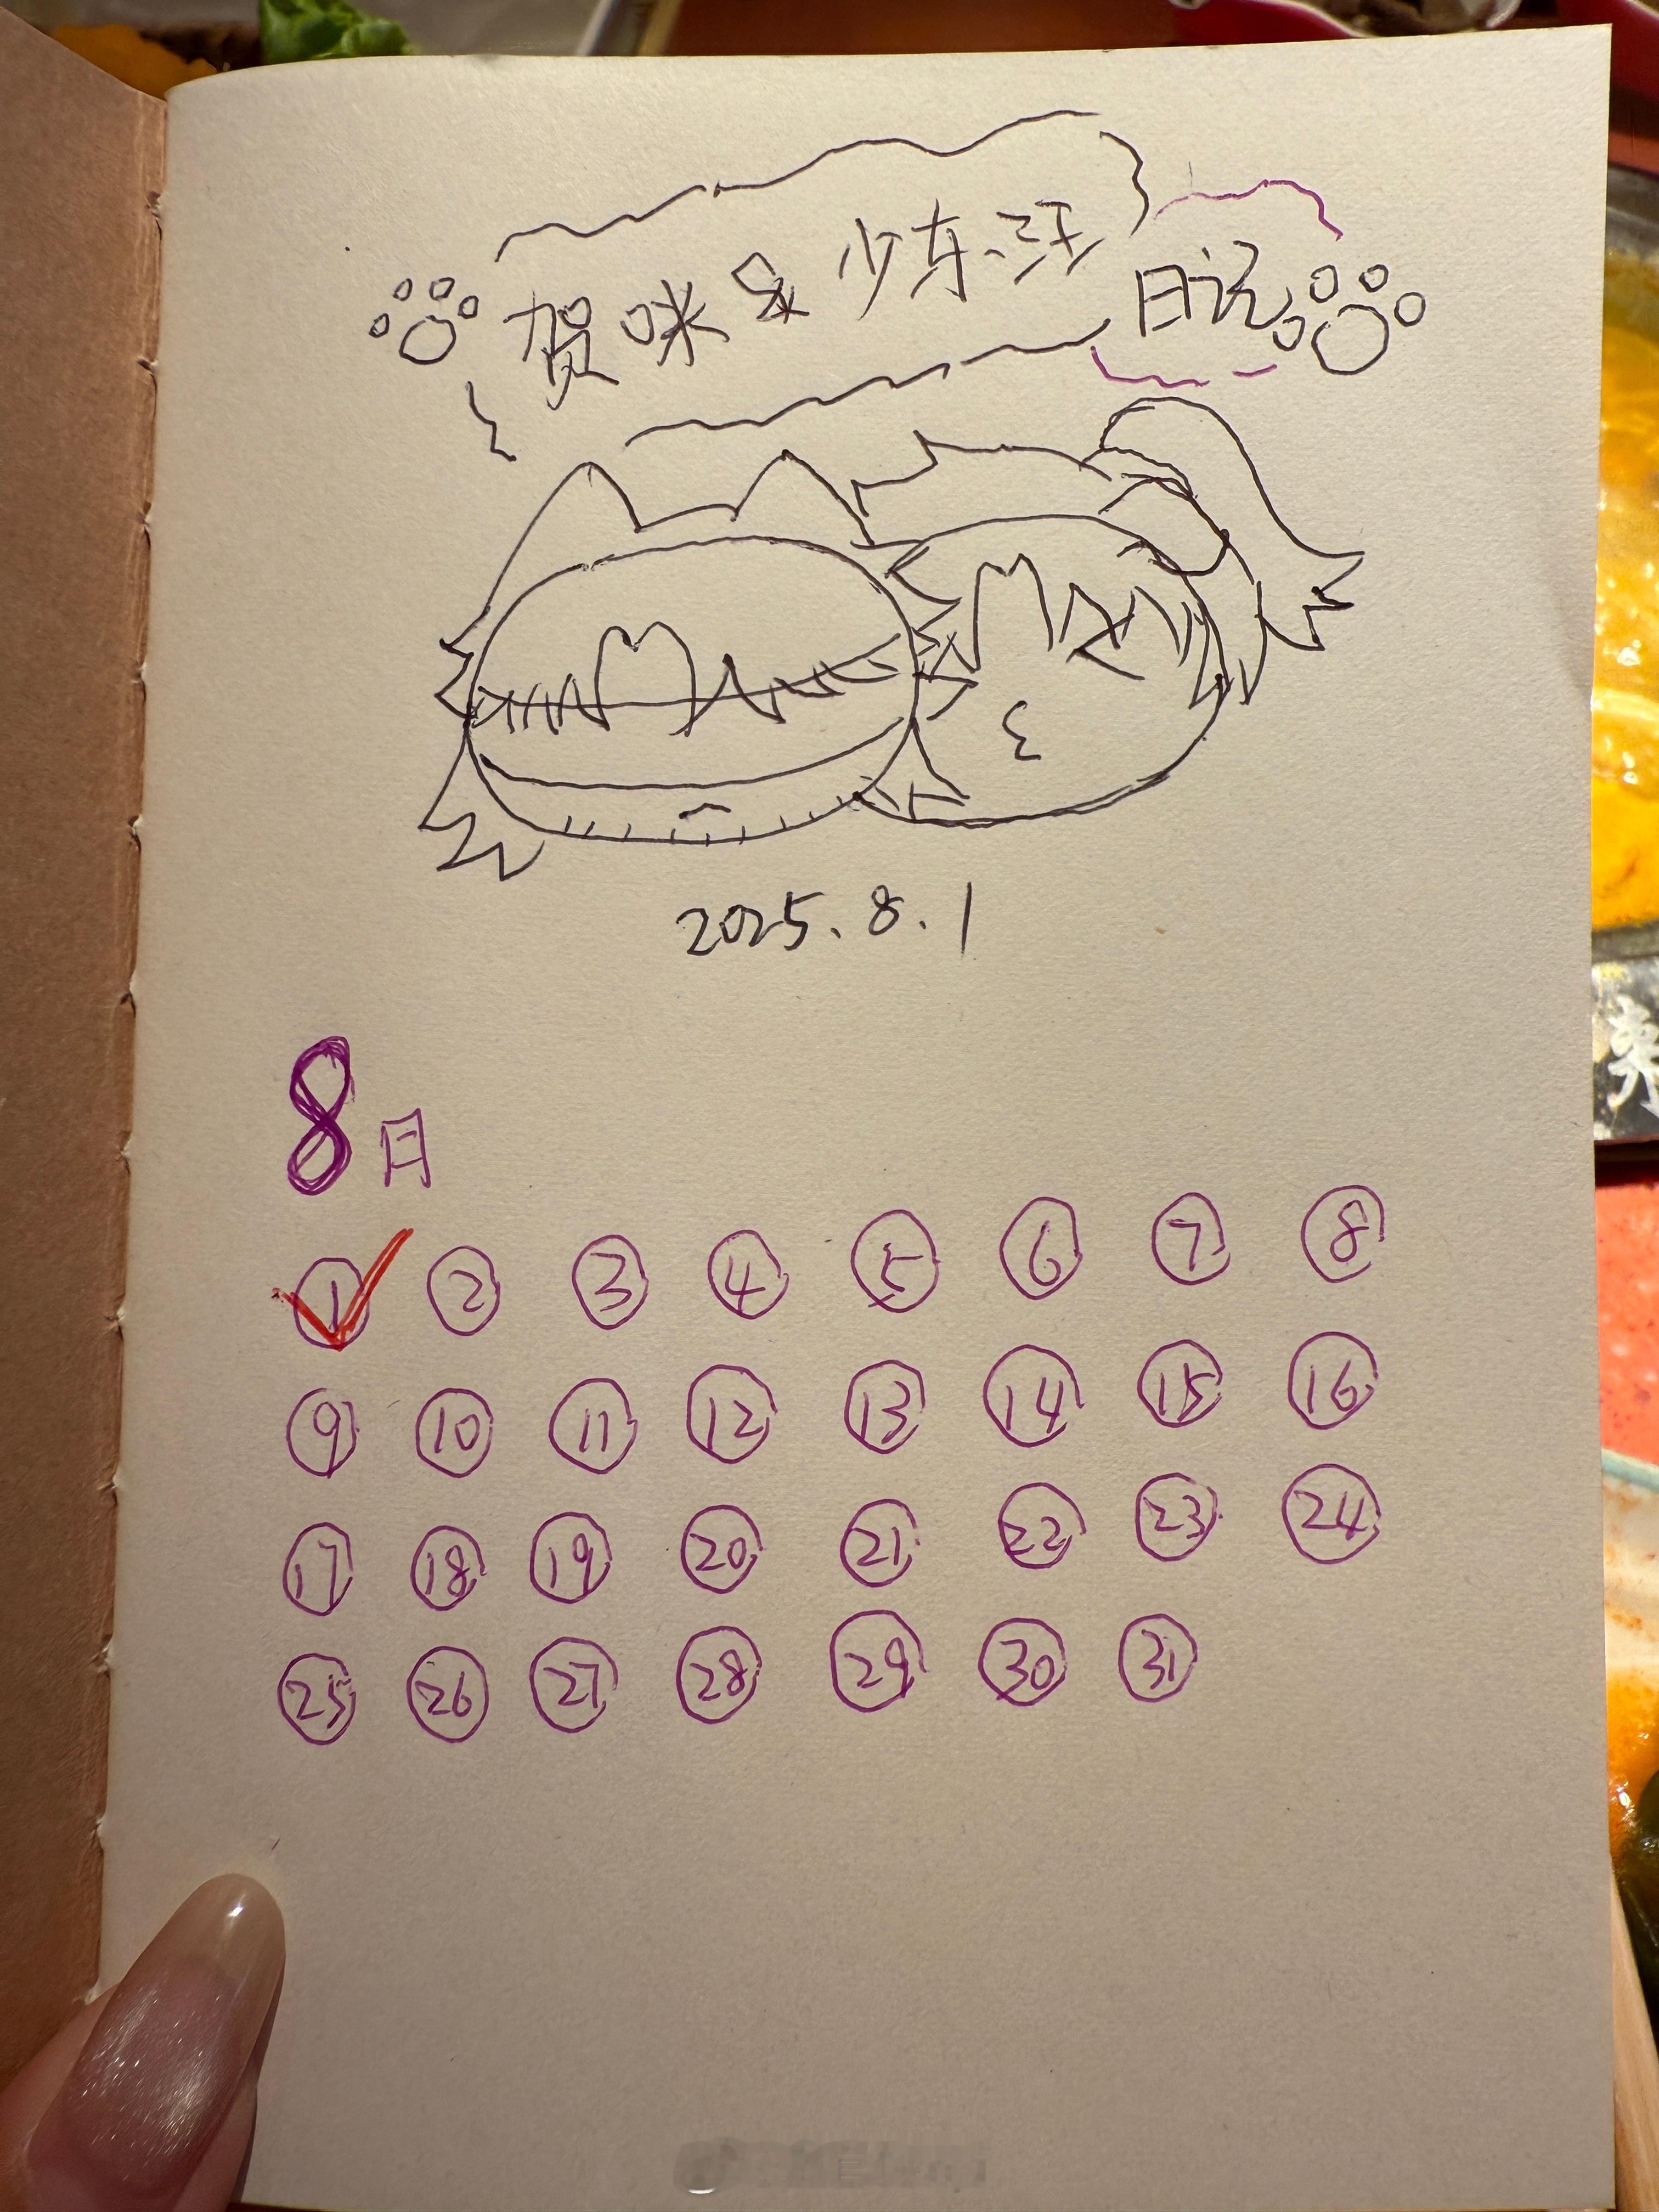 贺咪&少东汪日记
2025.8.1
8日
① ② ③ ④ ⑤ ⑥ ⑦ ⑧
⑨ ⑩ ⑪ ⑫ ⑬ ⑭ ⑮ ⑯
⑰ ⑱ ⑲ ⑳ ㉑ ㉒ ㉓ ㉔
㉕ ㉖ ㉗ ㉘ ㉙ ㉚ ㉛